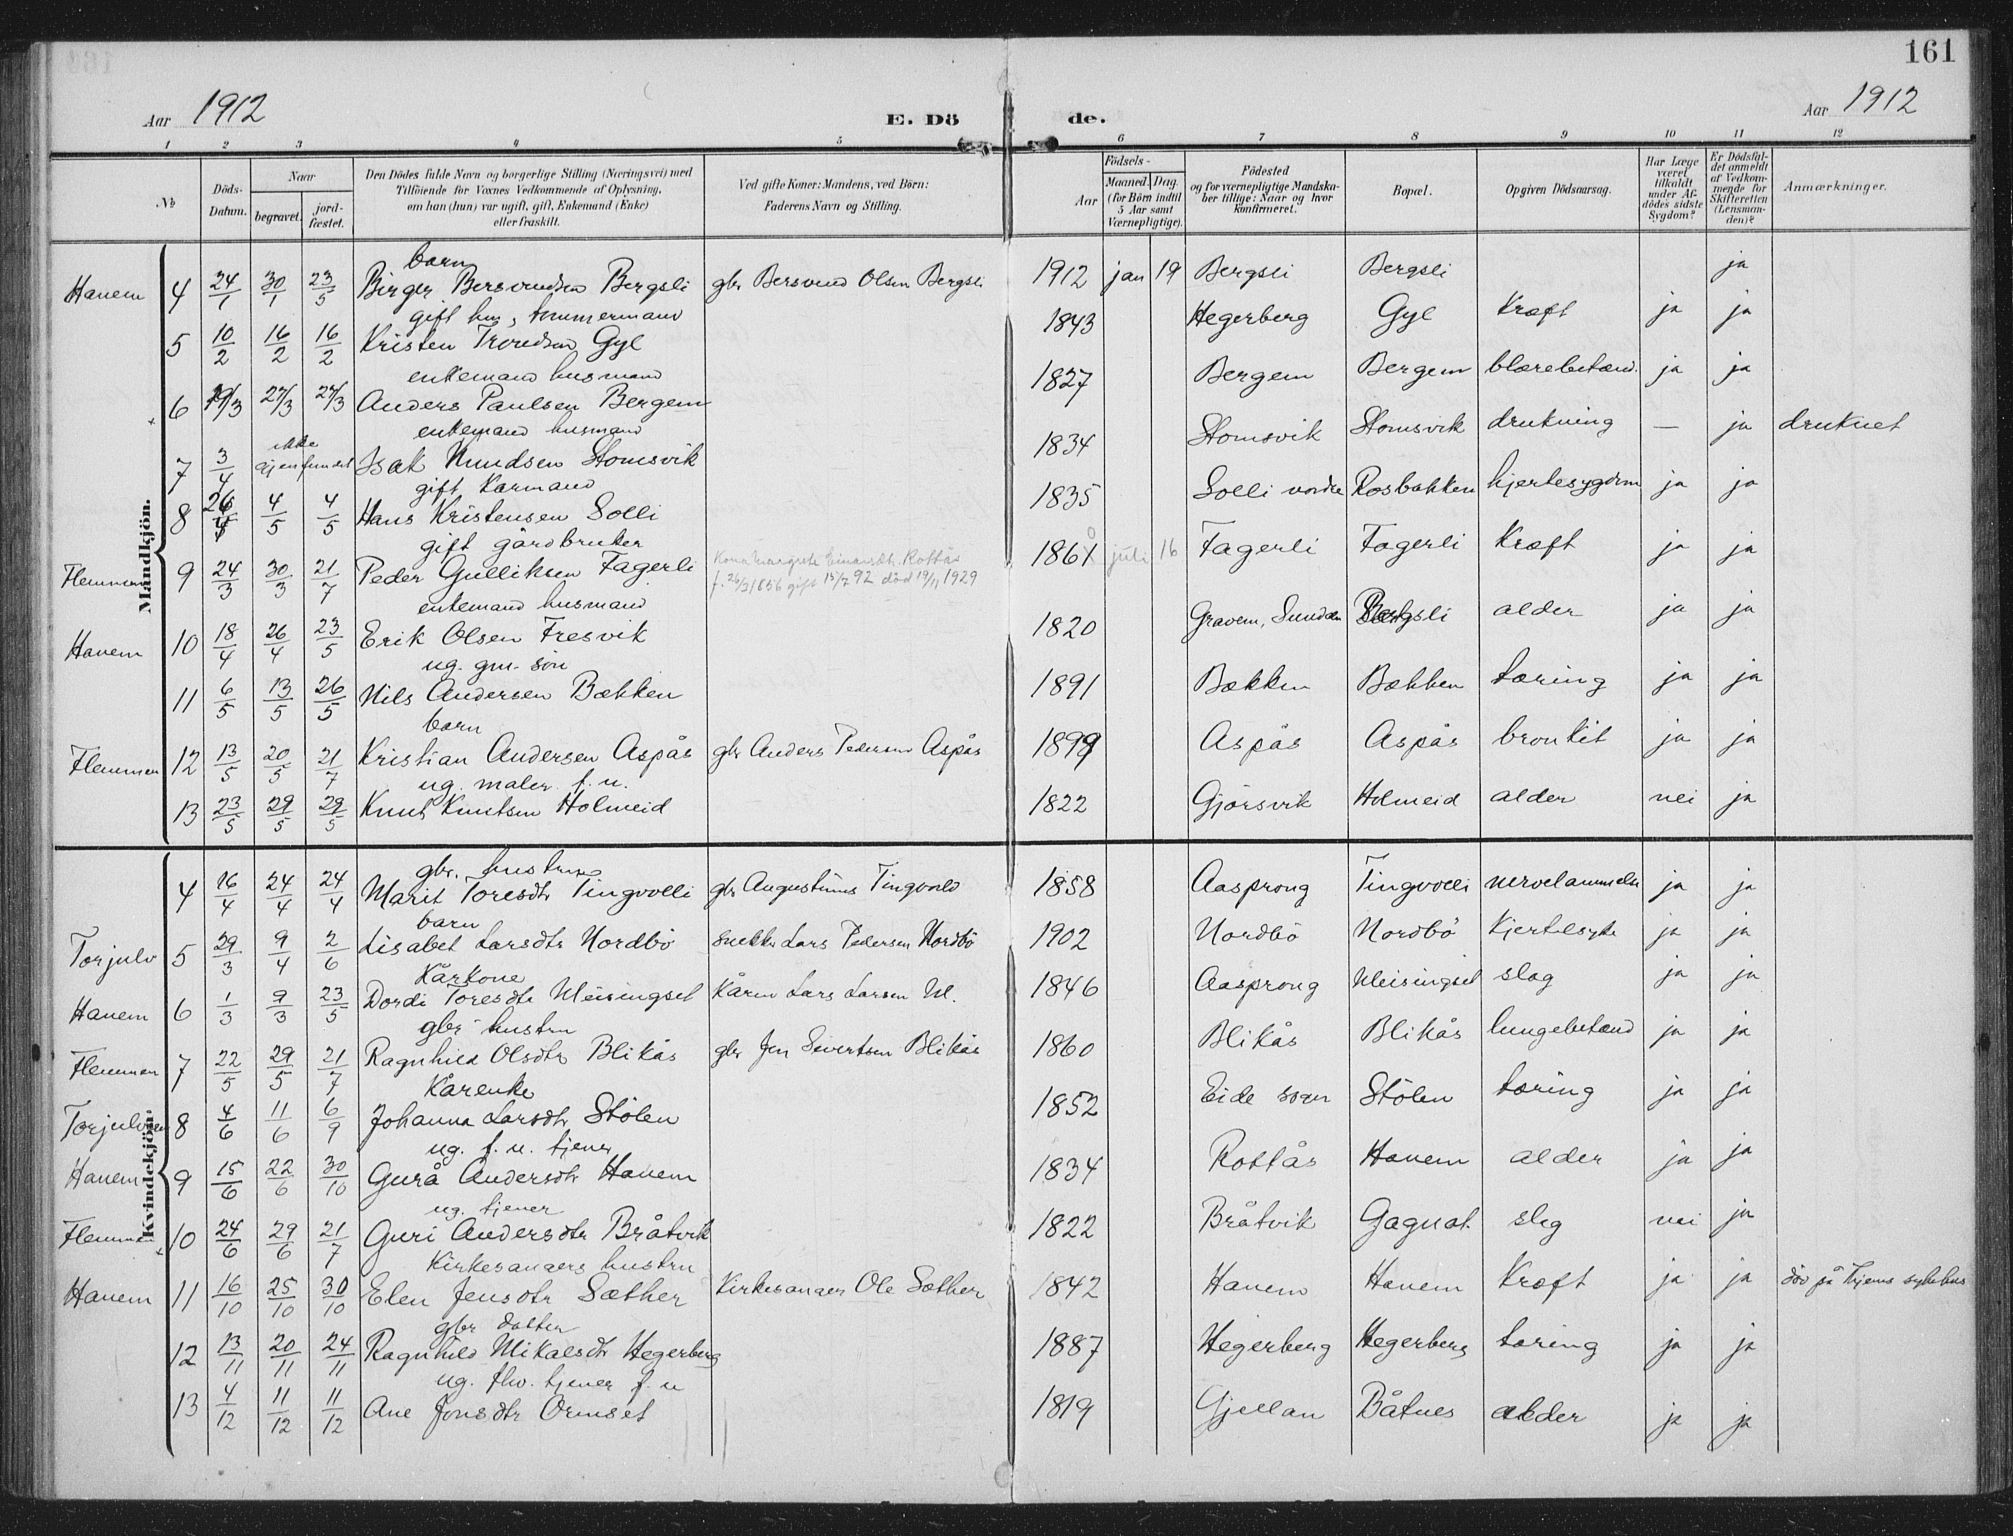 161
Aar 1912
E. Dö
de.
Aar 1912
1 2 3 4 5 6 7 8 9 10 11 12
№
Döds-Datum.
Naar
begravet.
jord-fæstet.
Den Dödes fulde Navn og borgerlige Stilling (Næringsvei) med
Tilföiende for Voxnes Vedkommende af Oplysning,
om han (hun) var ugift, gift, Enkemand (Enke)
eller fraskilt.
Ved gifte Koner: Mandens, ved Börn:
Faderens Navn og Stilling.
Födsels-
Aar
Maaned. Dag.
(for Börn indtil
5 Aar samt
Værnepligtige).
Födested
og for værnepligtige Mandska-
ber tillige: Naar og hvor
konfirmeret.
Bopæl.
Opgiven Dödsaarsag.
Har Læge
været
tilkaldt
under Af-
dödes sidste
Sygdom?
Er Dödsfal-
det anmeldt
af Vedkom-
mende for
Skifteretten
(Lensman-
den)?
Anmærkninger.
Mandkjön.
barn
Hanem 4 24/1 30/1 23/5 Birger Bersvendsen Bergsli gbr Bersvend Olsen Bergsli 1912 jan 19 Bergsli Bergsli ja
gift hus, tømmermand
5 10/2 16/2 16/2 Kristen Trondsen Gyl 1843 Hegerberg Gyl Kræft ja ja
enkemand husmand
6 19/3 27/3 27/3 Anders Paulsen Bergem 1827 Bergem Bergem blærebetænd. ja ja
enkemand husmand
7 3/4 ikke gjenfundet Isak Knudsen Stomsvik 1834 Stomsvik Stomsvik drukning — ja druknet
gift Kårmand
8 26/4 4/5 4/5 Hans Kristensen Solli 1835 Solli nordre Rosbakken hjertesygdom ja ja
gift gårdbruker
Flemmen 9 24/3 30/3 21/7 Peder Gulliksen Fagerli Kona Margrete Einarsdt. Rottås
f. 26/3 1856 gift 15/7 92 död 19/11 1929 1861 0 juli 16 Fagerli Fagerli Kræft ja ja
enkemand husmand
Hanem 10 18/4 26/4 23/5 Erik Olsen Fresvik 1820 Gravem, Sundalen Bergsli alder ja ja
ug. gm. sön
11 6/5 13/5 26/5 Nils Andersen Bækken 1891 Bækken Bækken tæring ja ja
barn
Flemmen 12 13/5 20/5 21/7 Kristian Andersen Aspås gbr Anders Pedersen Aspås 1899 Aspås Aspås bronkit ja ja
ug. maler f. u.
13 23/5 29/5 29/5 Knut Knutsen Holmeid 1822 Gjörsvik Holmeid alder nei ja
Kvindekjön.
gbr. hustru
4 16/4 24/4 24/4 Marit Toresdtr Tingvolli gbr Augustinus Tingvold 1858 Aasprong Tingvolli nervelammelse ja ja
barn
Torjulv 5 29/3 9/4 2/6 Lisabet Larsdtr Nordbö snekker Lars Pedersen Nordbö 1902 Nordbö Nordbö Kjertelsyke ja ja
Kårkone
Hanem 6 1/3 9/3 23/5 Dordi Toresdtr Meisingset Kårm Lars Larsen M. 1846 Aasprong Meisingset slag ja ja
gbr hustru
Flemmen 7 22/5 29/5 21/7 Ragnhild Olsdtr Blikås gbr Jen Sivertsen Blikås 1860 Blikås Blikås lungebetænd ja ja
Kårenke
Torjulvsen 8 4/6 11/6 6/9 Johanna Larsdtr Stölen 1852 Eide sogn Stölen tæring ja ja
ug. f. u. tjener
Hanem 9 15/6 22/6 30/10 Gurå Andersdtr Hanem 1834 Rottås Hanem alder ja ja
ug. tjener
Flemmen 10 24/6 29/6 21/7 Guri Andersdtr Bråtvik 1822 Bråtvik Gagnat slag nei ja
Kirkesangers hustru
Hanem 11 16/10 25/10 30/10 Elen Jensdtr Sæther Kirkesanger Ole Sæther 1842 Hanem Hanem Kræft ja ja död på Trjems sykehus
gbr datter
12 13/11 20/11 24/11 Ragnhild Mikalsdtr Hegerberg 1887 Hegerberg Hegerberg tæring ja ja
ug. fhv. tjener f. u
13 4/12 11/12 11/12 Ane Jonsdtr Ormset 1819 Gjellan Båtnes alder ja ja